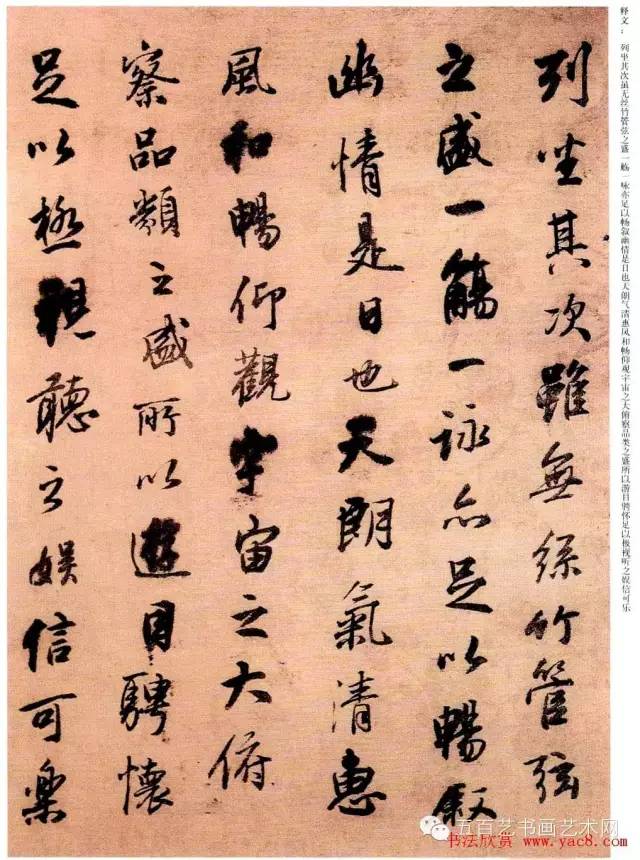 释文：列坐其次虽无丝竹管弦之盛一觞一咏亦足以畅叙幽情是日也天朗气清惠风和畅仰观宇宙之大俯察品类之盛所以游目骋怀足以极视听之娱信可乐
列坐其次雖無絲竹管弦
之盛一觴一詠亦足以暢敘
幽情是日也天朗氣清惠
風和暢仰觀宇宙之大俯
察品類之盛所以遊目騁懷
足以極視聽之娛信可樂
五百艺书画艺术网
书法欣赏 www.yac8.com